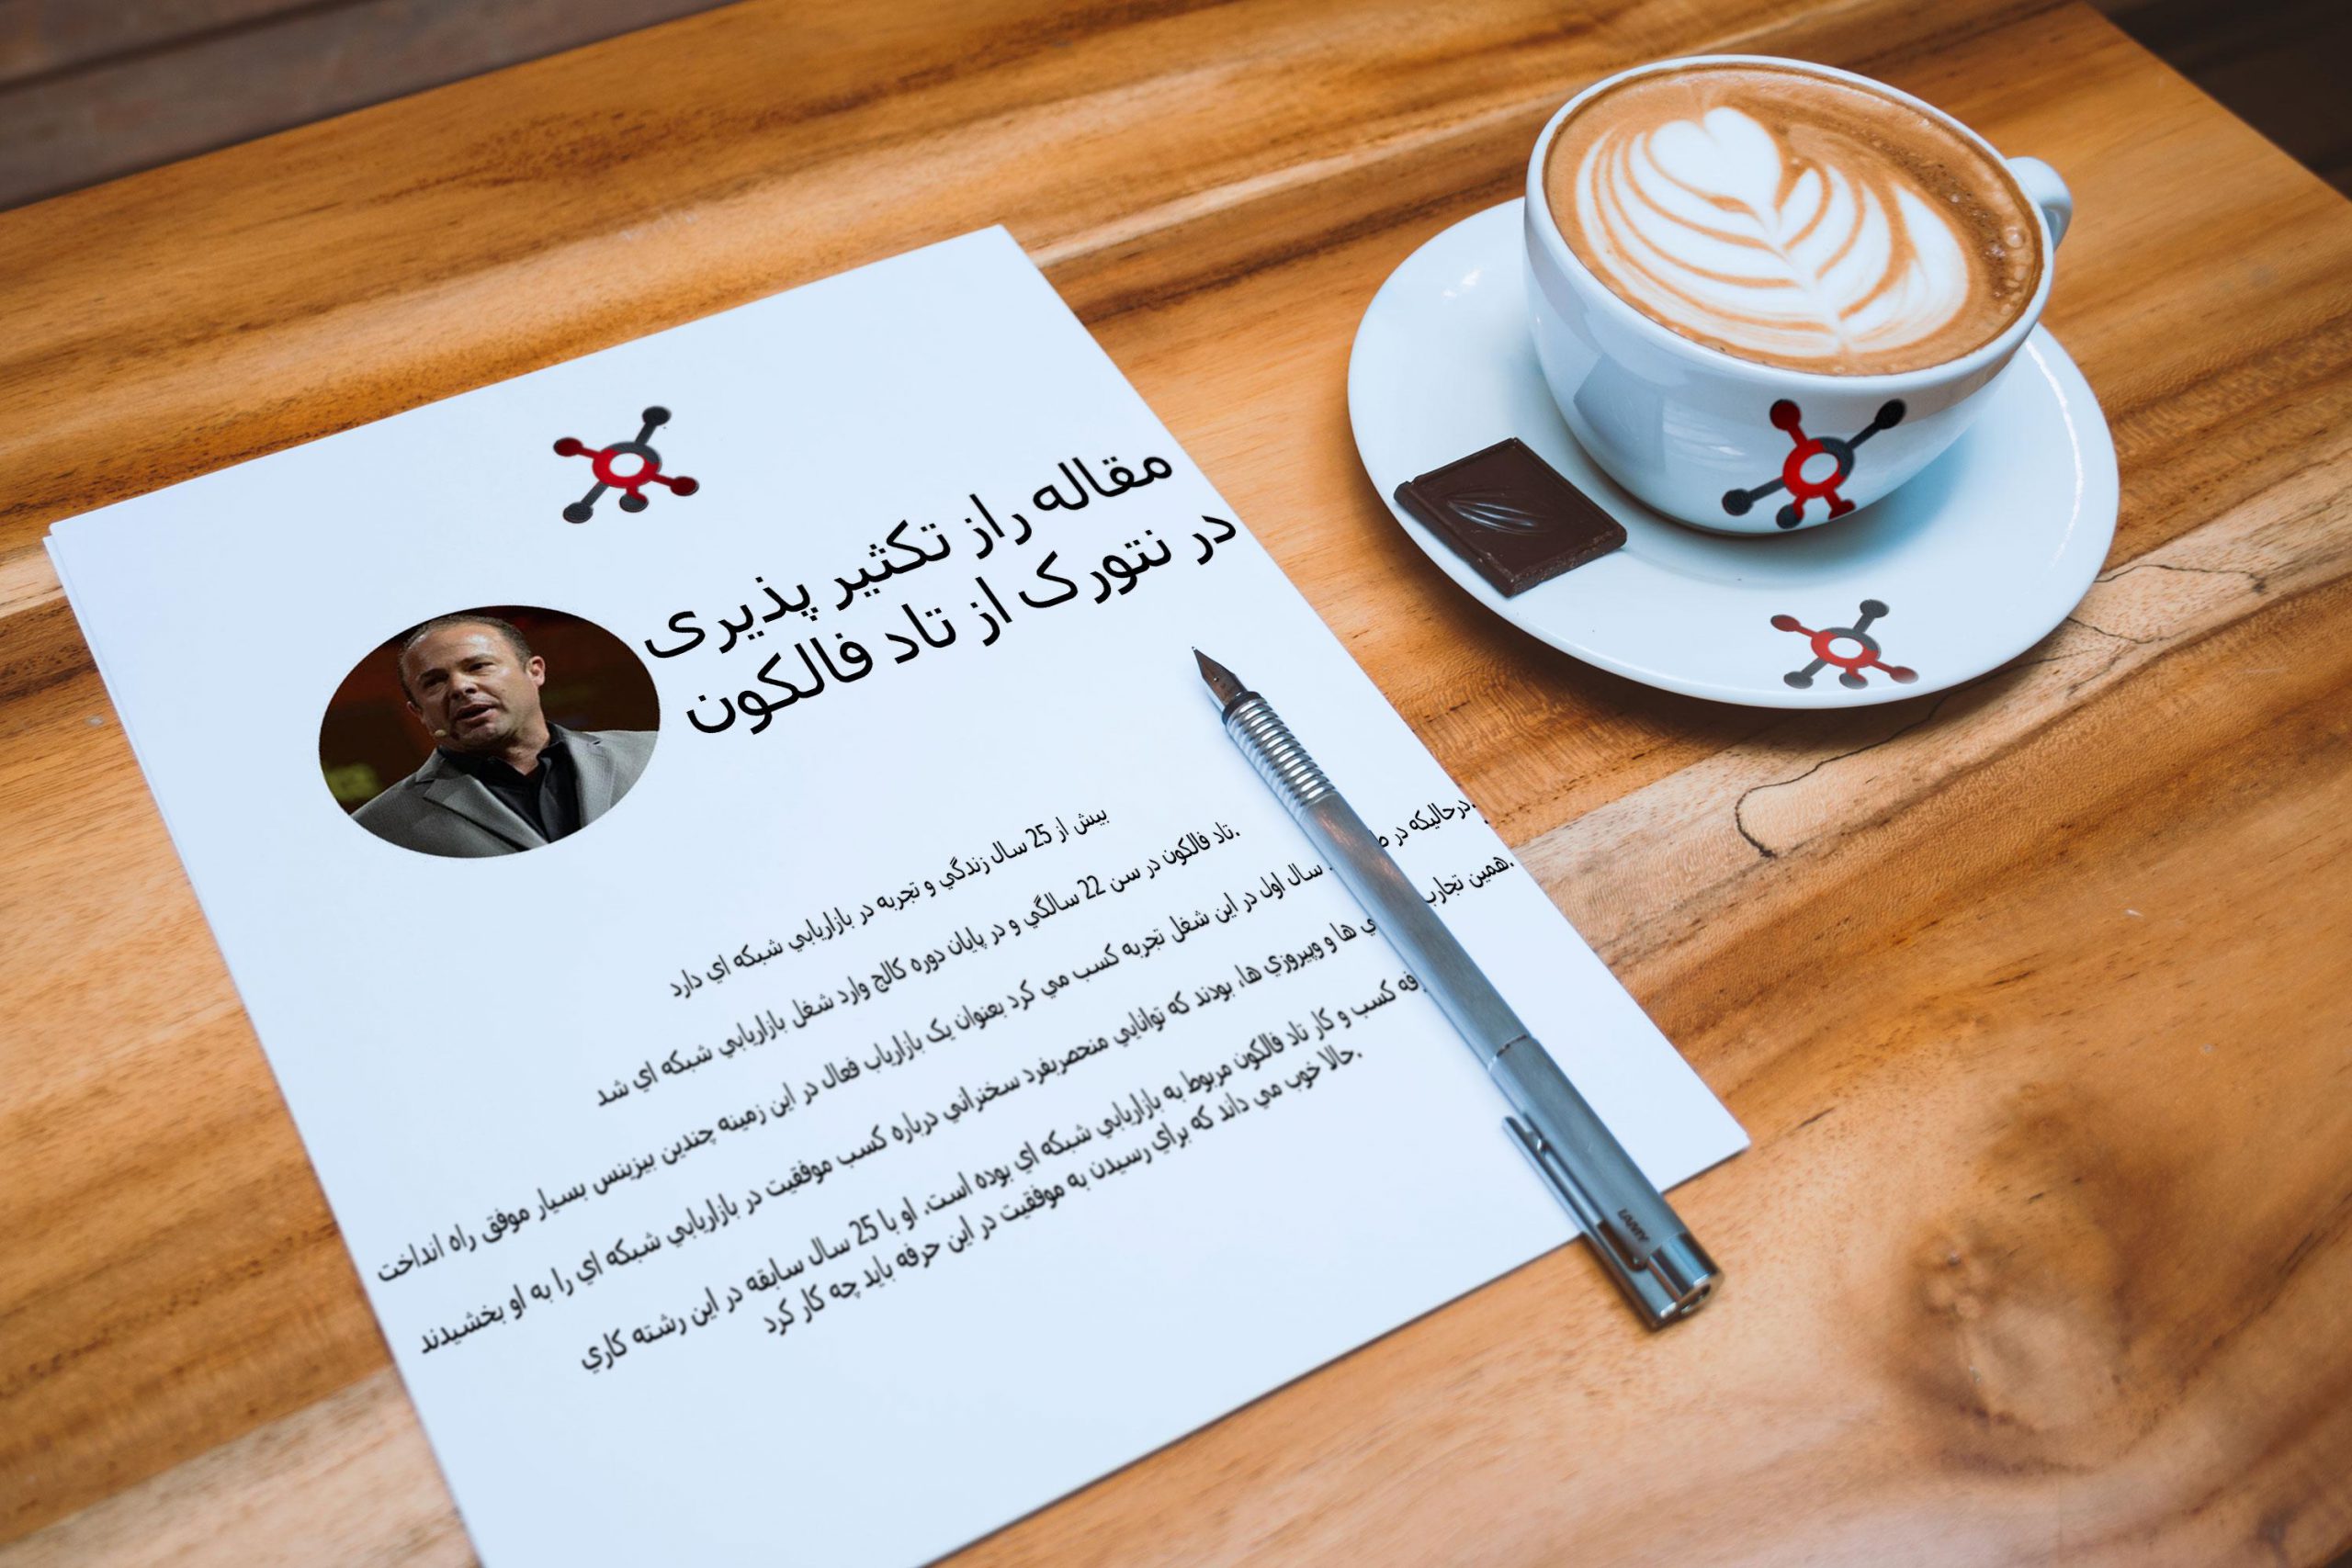 مقاله راز تکثیر پذیری
در نتورک از تاد فالکون
بیش از 25 سال زندگي و تجربه در بازاریابي شبکه اي دارد
تاد فالکون در سن 22 سالگي و در پایان دوره کالج وارد شغل بازاریابي شبکه اي شد.
درحالیکه در سال اول در این شغل تجربه کسب مي کرد بعنوان یک بازاریاب فعال در این زمینه چندین بیزینس بسیار موفق راه انداخت.
همین تجارب ها و وپیروزي ها، بودند که توانایي منحصربفرد سخنراني درباره کسب موفقیت در بازاریابي شبکه اي را به او بخشیدند.
کسب و کار تاد فالکون مربوط به بازاریابي شبکه اي بوده است. او با 25 سال سابقه در این رشته کاري
حالا خوب مي داند که براي رسیدن به موفقیت در این حرفه باید چه کار کرد.
LAMY